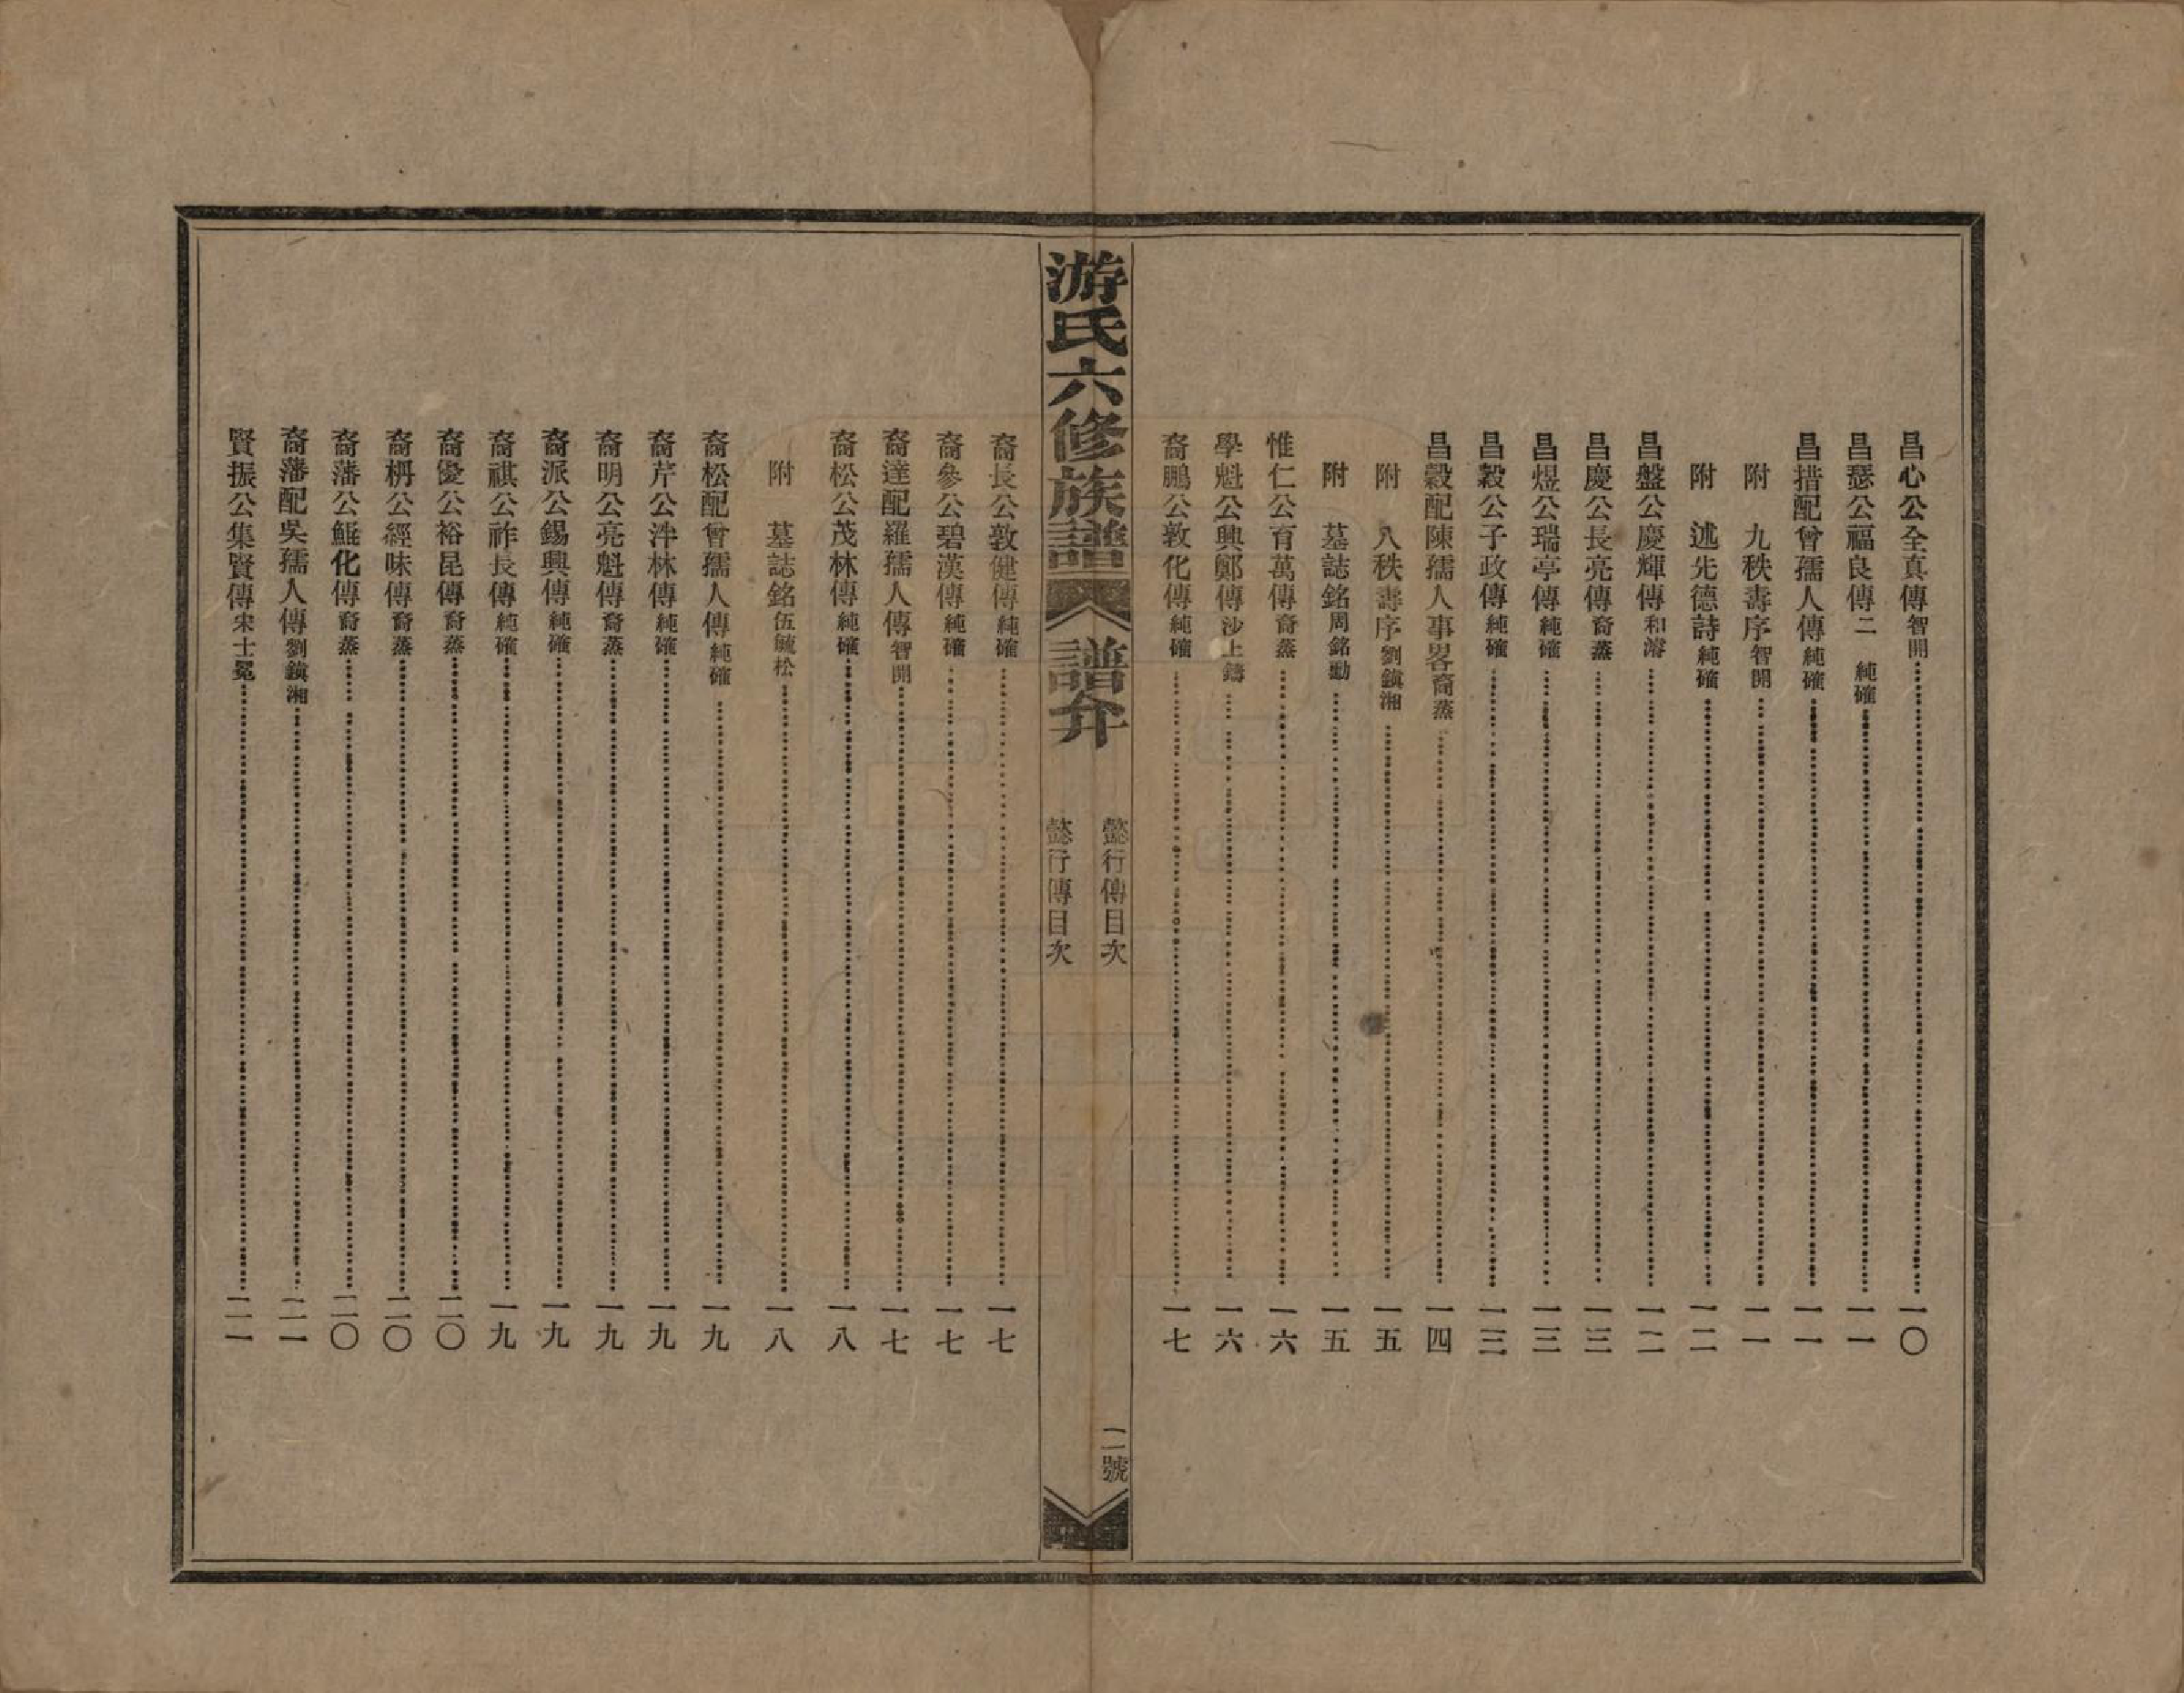 昌心公全真傳智開……一〇
昌瑟公福良傳二 純確……一一
昌措配曾孺人傳純確……一一
附 九秩壽序智開……一一
附 述先德詩純確……一二
昌盤公慶輝傳和濬……一二
昌慶公長亮傳裔蒸……一三
昌煜公瑞亭傳純確……一三
昌穀公子政傳純確……一三
昌穀配陳孺人事畧裔蒸……一四
附 八秩壽序劉鎮湘……一五
附 墓誌銘周銘勳……一五
惟仁公育萬傳裔蒸……一六
學魁公興鄭傳沙上鑄……一六
裔鵬公敦化傳純確……一七
游氏六修族譜 譜弁
懿行傳目次
二號
懿行傳目次
裔長公敦健傳純確……一七
裔參公碧漢傳純確……一七
裔達配羅孺人傳智開……一七
裔松公茂林傳純確……一八
附 墓誌銘伍毓松……一八
裔松配曾孺人傳純確……一九
裔芹公泮林傳純確……一九
裔明公亮魁傳裔蒸……一九
裔派公錫興傳純確……一九
裔祺公祚長傳純確……一九
裔優公裕昆傳裔蒸……二〇
裔枬公經味傳裔蒸……二〇
裔藩公鯤化傳裔蒸……二〇
裔藩配吳孺人傳劉鎮湘……二一
賢振公集賢傳宋士冕……二一